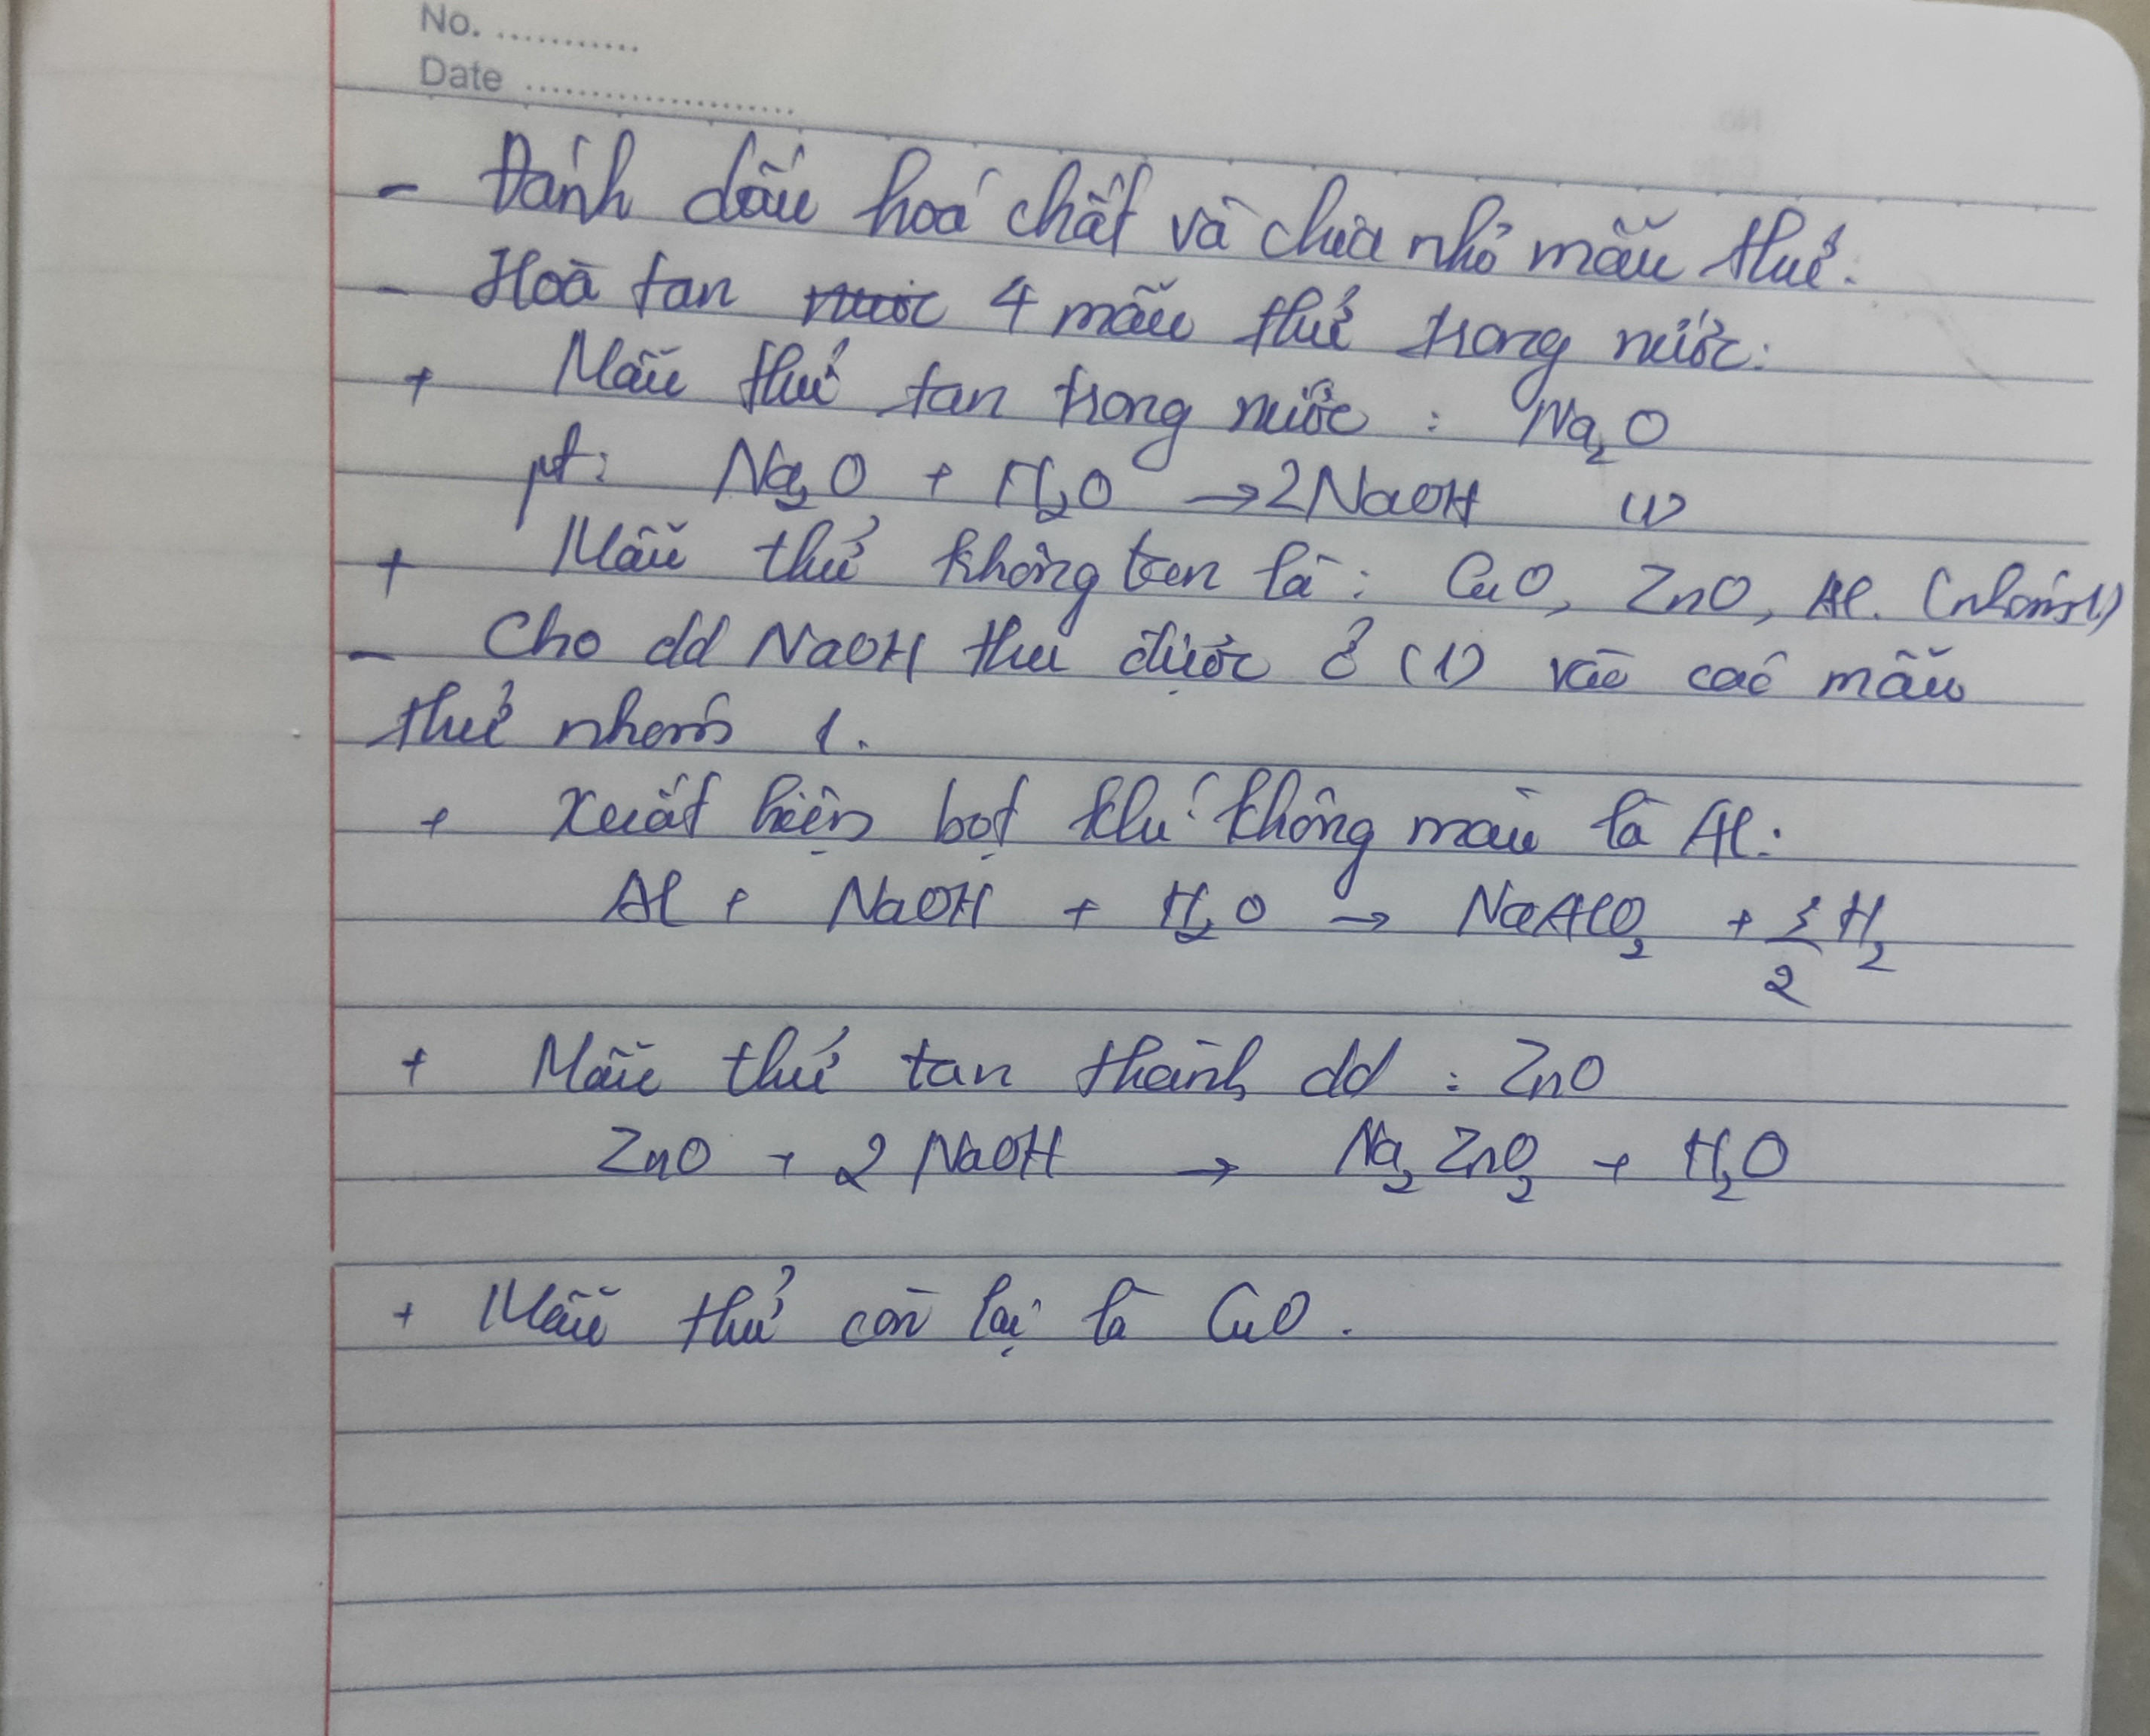 No. ...........
Date ....................
- Đánh dấu hoá chất và chia nhỏ mẫu thử.
- Hoà tan nước 4 mẫu thử trong nước:
+ Mẫu thử tan trong nước : Na₂O
pt: Na₂O + H₂O → 2NaOH (1)
+ Mẫu thử không tan là : CuO, ZnO, Al. (nhóm 1)
- Cho dd NaOH thu được ở (1) vào các mẫu
thử nhóm 1.
+ Xuất hiện bọt khí không màu là Al:
Al + NaOH + H₂O → NaAlO₂ + 3/2 H₂
+ Mẫu thử tan thành dd : ZnO
ZnO + 2 NaOH → Na₂ZnO₂ + H₂O
+ Mẫu thử còn lại là CuO.